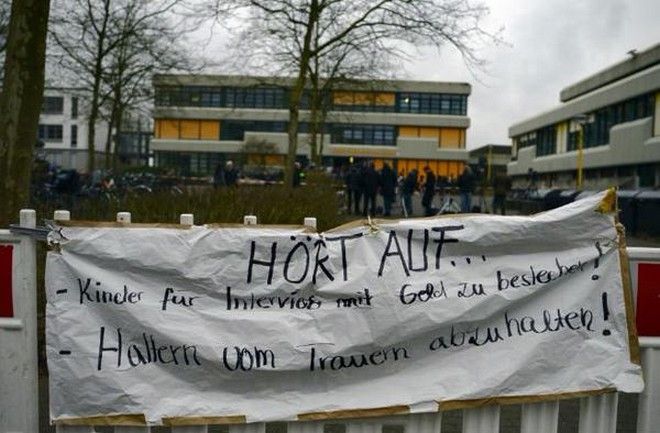 HÖRT AUF...
- Kinder für Interviews mit Geld zu bestechen!
- Haltern vom Trauern abzuhalten!